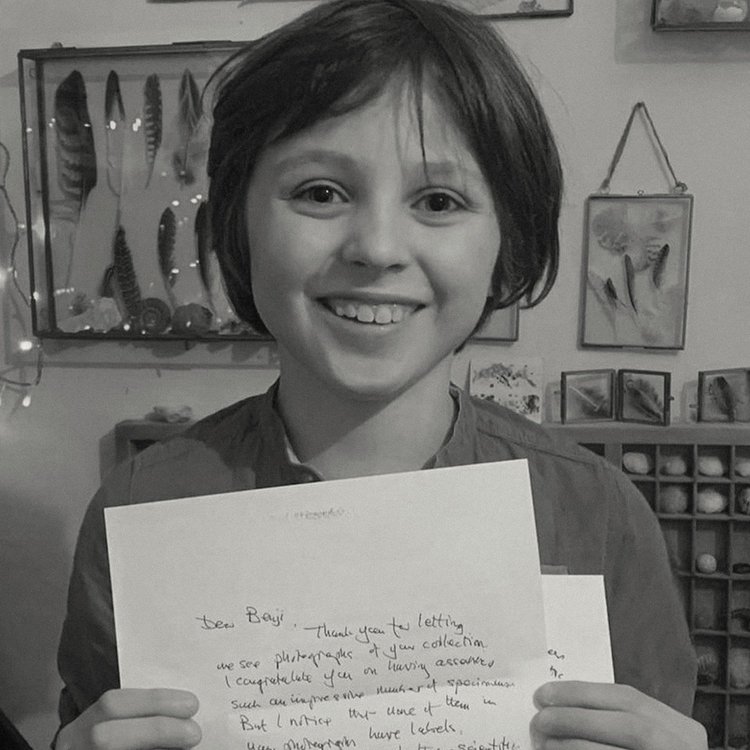 Dear Benji, Thank you for letting
me see photographs of your collection
I congratulate you on having assembled
such an impressive number of specimens
But I notice that none of them in
your photographs have labels.
scientific